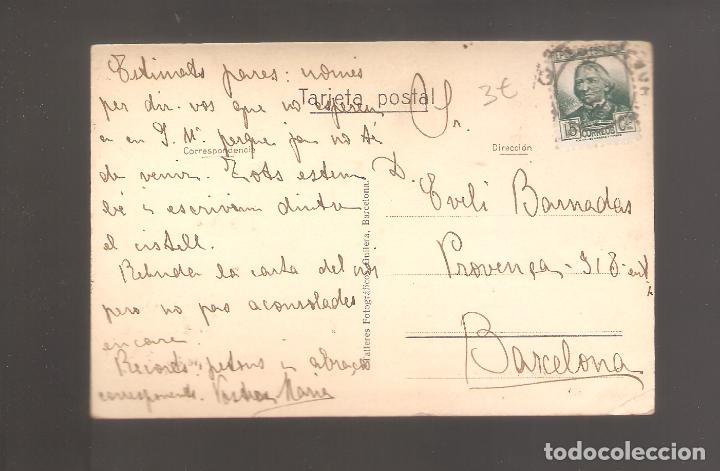 Estimats pares: només
per dir-vos que no esperen
a en J. Mª perque ja no té
de venir. Tots estem
bé i escrivim dintre
el cistell.
Rebuda la carta del noi
pero no pas aconsolades
encare.
Records, petons i abraços
corresponents. Vostra Maria
Tarjeta postal
Correspondencia
Dirección
Talleres Fotográficos Guilera, Barcelona.
Sr.
D. Eveli Barnadas
Provença - 318 - ent
Barcelona
3€
15 CORREOS Cts
todocoleccion.net